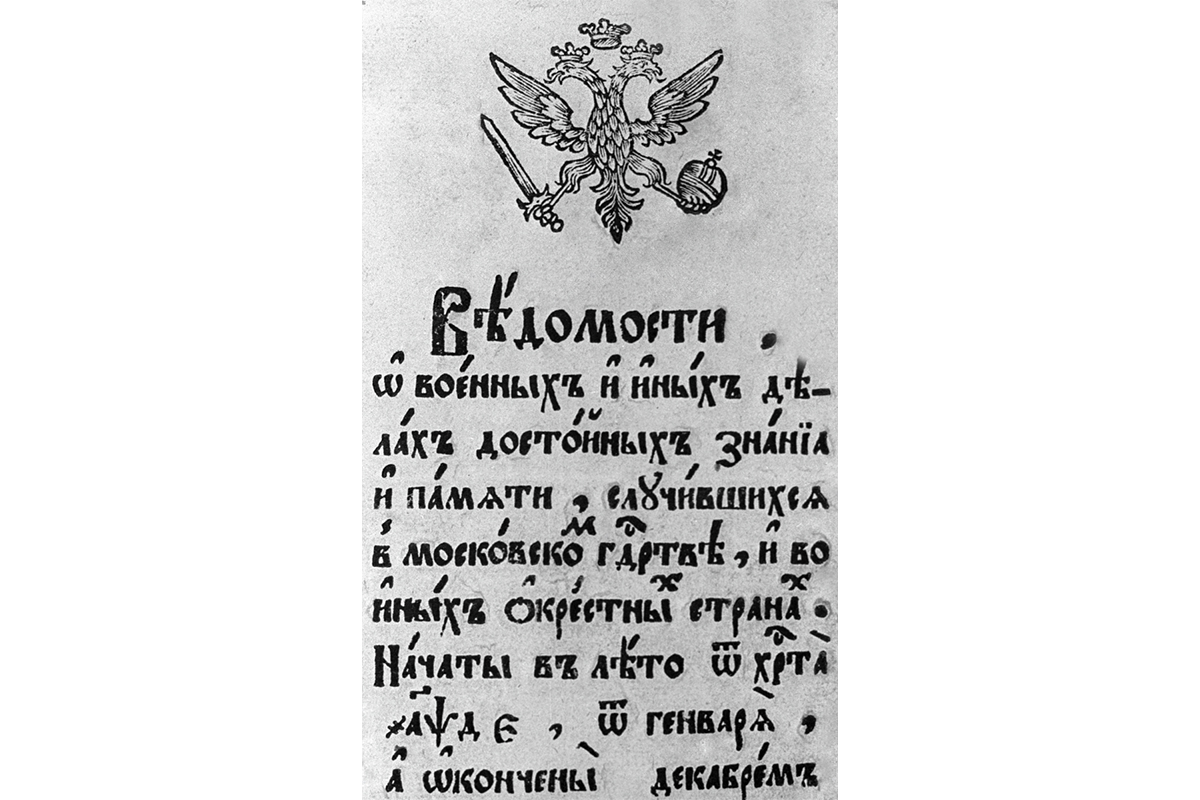 Вѣ́домости .
ѡ҆ вое́нныхъ и҆ и҆ны́хъ дѣ-
ла́хъ досто́йныхъ зна́нїѧ
и҆ па́мѧти , слꙋчи́вшихсѧ
в̾ моско́вскоⷨ гдⷭ҇ртвѣ , и҆ во
и҆ны́хъ ѻ҆кре́стныⷯ странаⷯ .
На́чаты въ лѣ́то ѿ хрⷭ҇та̀
҂а҃ѱд є , ѿ генварѧ̀ ,
а҆ ѡ҆кончены̀ декабре́мъ